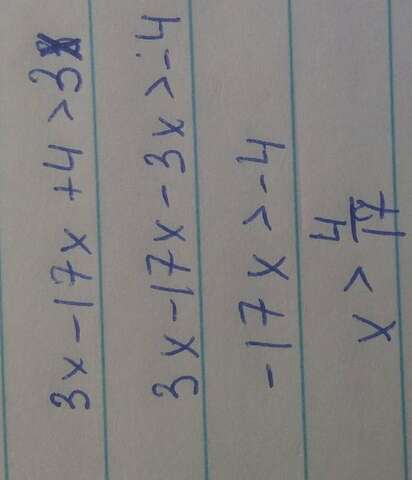 3x-17x+4>3x
3x-17x-3x>-4
-17x>-4
x>4/17